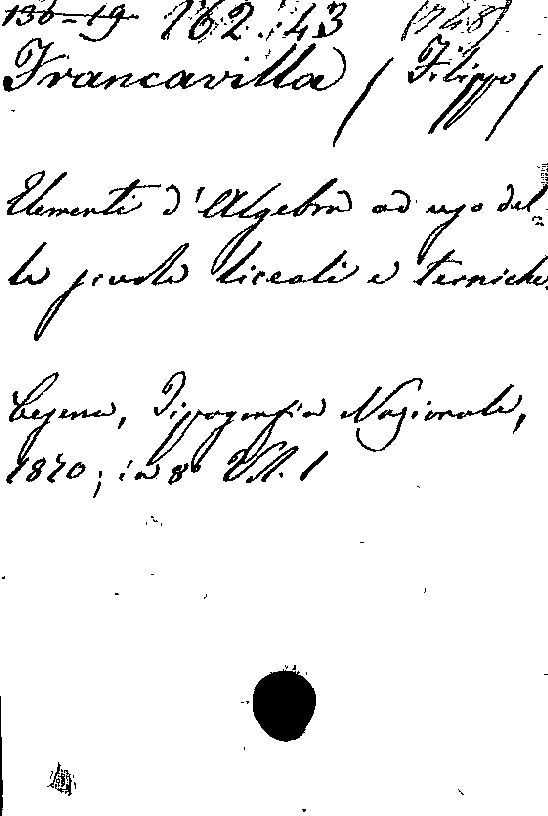 136-19 162.43 (748)
Francavilla (Filippo)
Elementi d'Algebra ad uso del=
le scuole liceali e tecniche.
Cesena, Tipografia Nazionale,
1870; in 8º Vol. 1